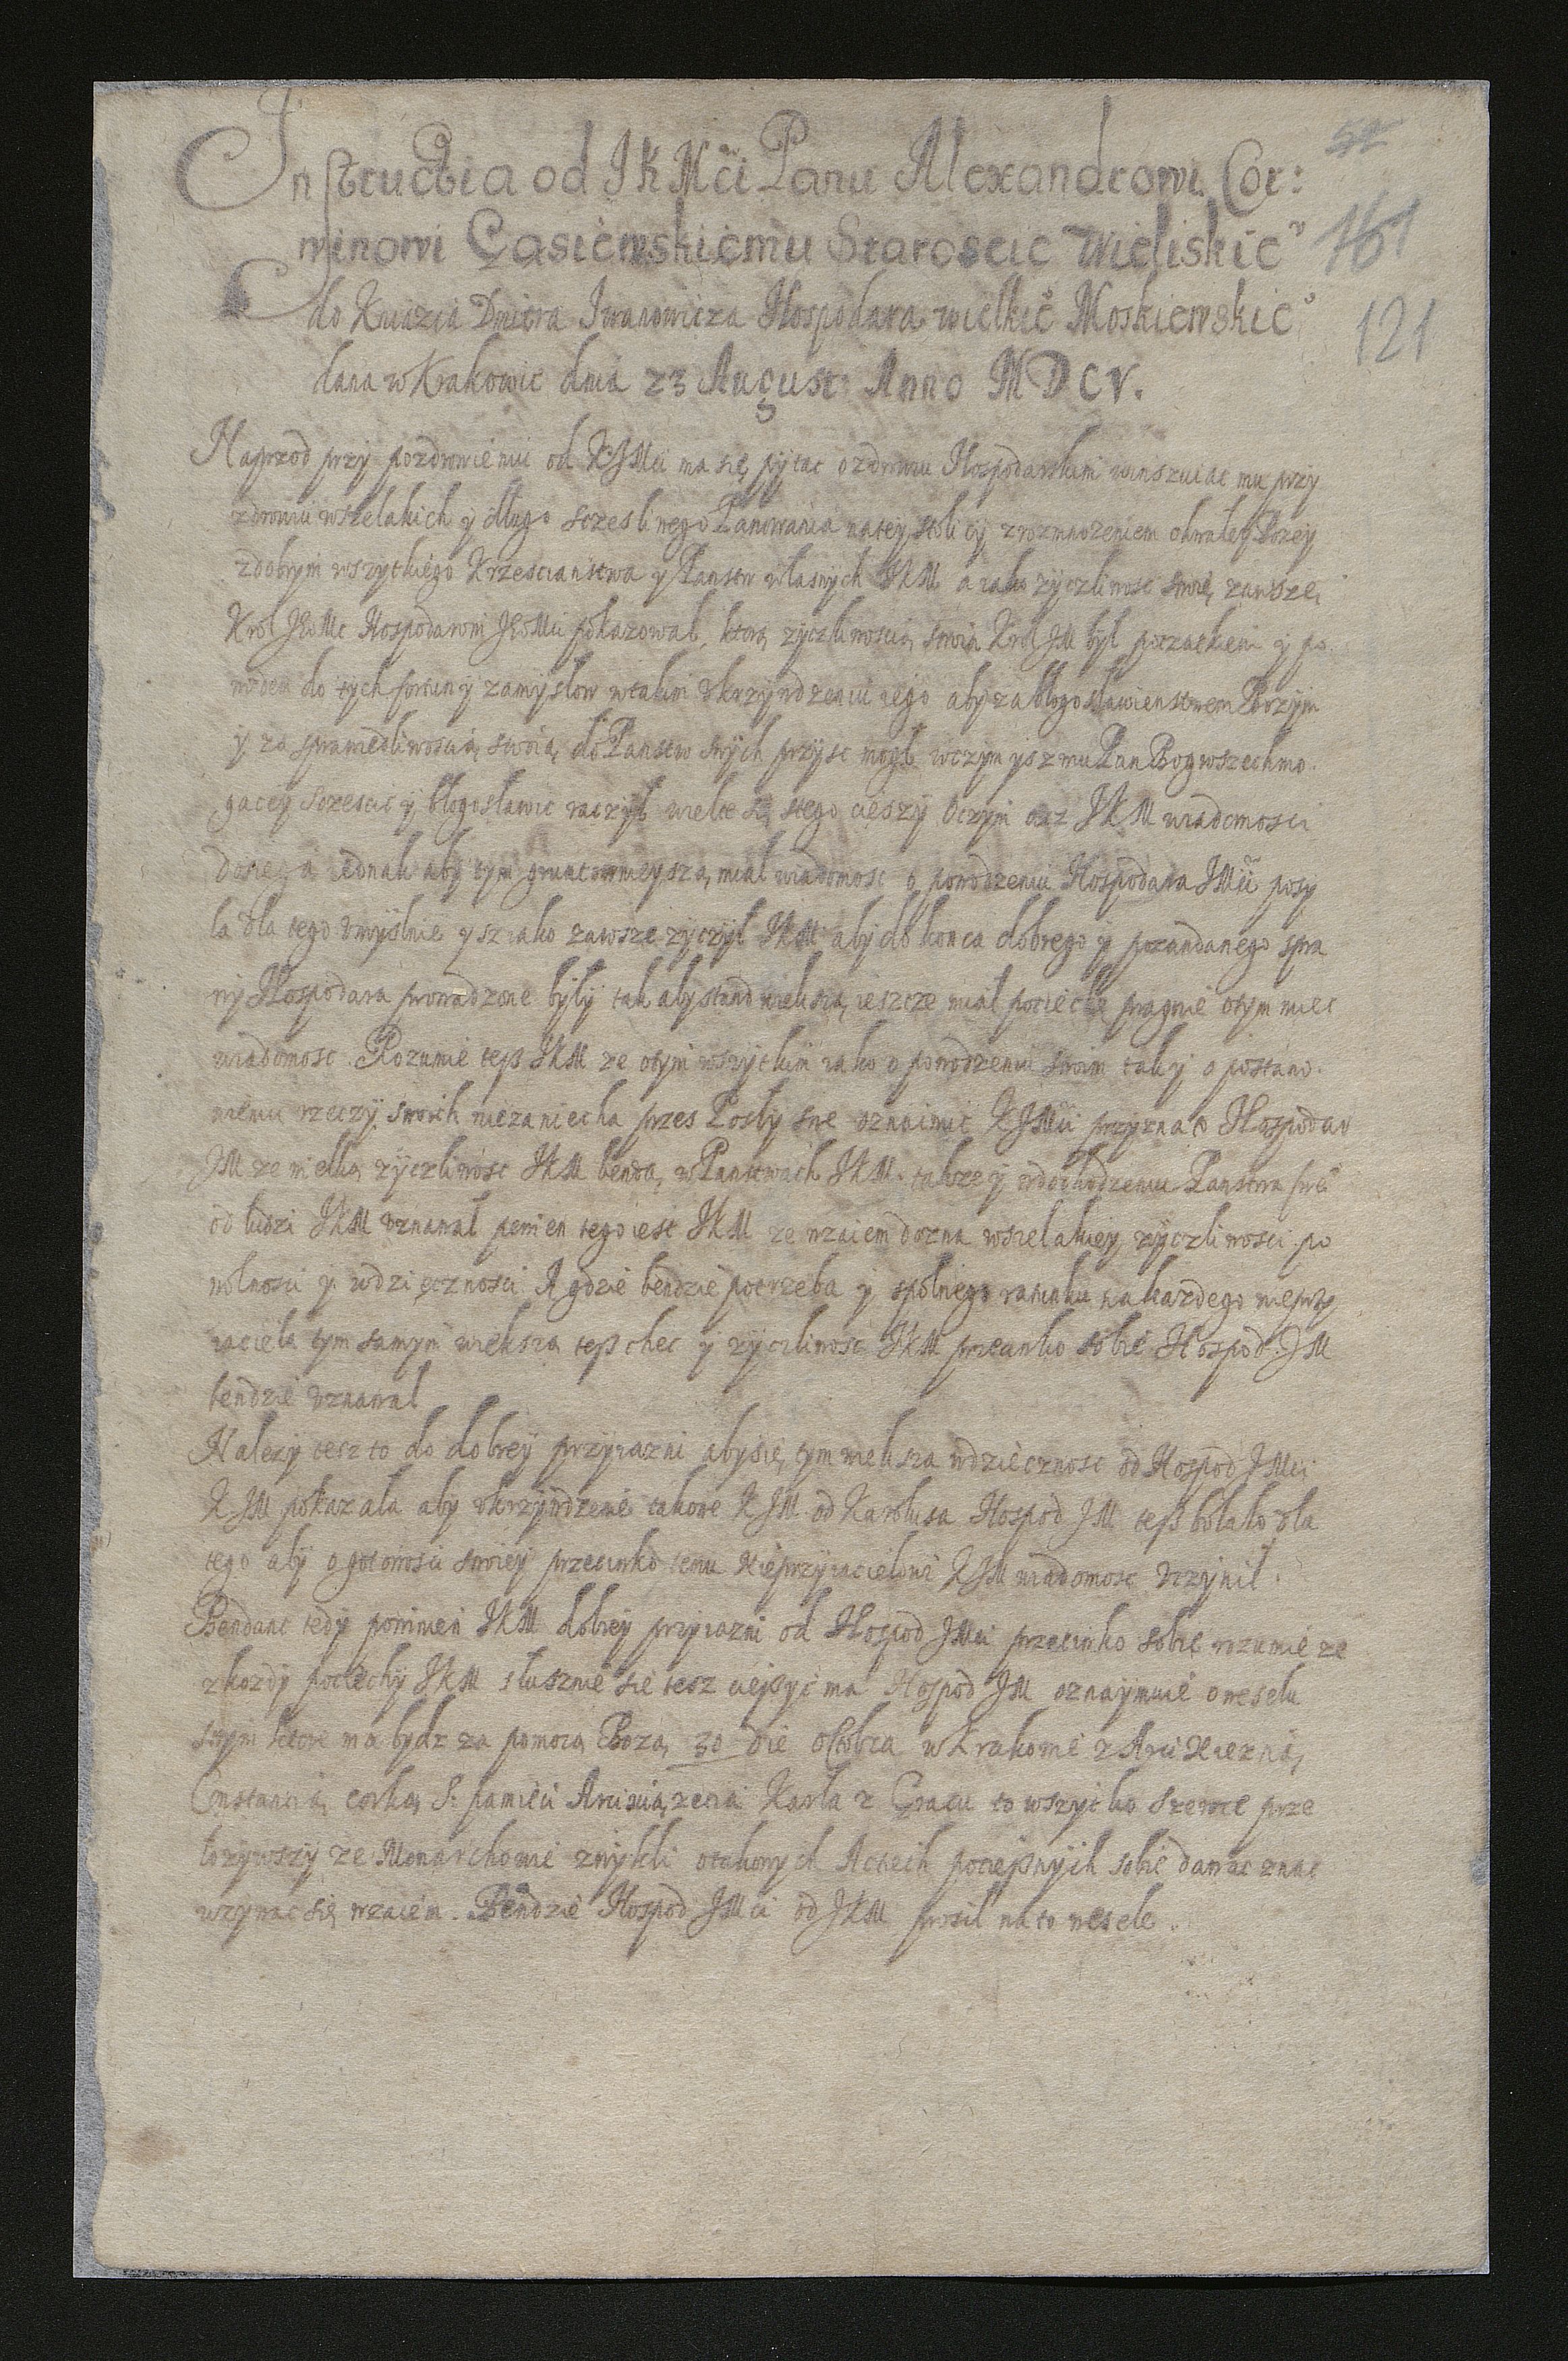 Instructia od JKMci Panu Alexandrowi Cor:
winowi Gasiewskiemu Staroscie wieliskieo
52
161
do Kniazia Dmitra Iwanowicza Hospodara wielkieo Moskiewskieo
121
dana w Krakowie dnia 23 August Anno MDCV.
Naprzod przy pozdrowieniu od KJMci ma się pytac o zdrowiu Hospodarskim winszuiac mu przy
zdrowiu wszelakich y długo sczesliwego Panowania na tey stolicy z rozmnozeniem chwały Bozey
z dobrym wszytkiego Krzescianstwa y Panstw własnych JKM a iako zyczliwosc swoię zawsze
Krol JeoMc Hospodarowi JeoMci pokazował, ktorą zyczliwoscią swoią Krol JM był początkiem y po
wodem do tych fortuny zamysłow w takim vkrzywdzeniu iego aby za błogosławienstwem Bozym
y za sprawiedliwoscią swoią do Panstw swych przysc mogł w czym ysz mu Pan Bog wszechmo.
gacey sczescic y błogosławic raczył wielce się s tego cieszy O czym acz JKM wiadomosci
doszegą iednak aby tym gruntownieyszą miał wiadomosc o powodzeniu Hospodara JMci posy
ła dla tego vmyslnie y sz iako zawsze zyczył JKM aby do konca dobrego y pozandanego spra
wy Hospodara prowadzone były tak aby stand wieksza ieszcze miał pociechę pragnie o tym miec
wiadomosc. Rozumie tesz JKM ze o tym wszytkim iako o powodzeniu swoim tak y o postano.
wieniu rzeczy swoich niezaniecha przes Posły swe oznaimic KJMci przyznac Hospodar
JM ze wielką zyczliwosc JKM bendą w Panstwach JKM. takze y w dochodzeniu Panstwa sweo
od ludzi JKM vznawał pewien tego iest JKM ze wzaiem dozna wszelakiey zyczliwosci po
wolnosci y wdzięcznosci A gdzie bendzie potrzeba y spolnego ratunku na kazdego nieprzy
iaciela tym samym wieksza tesz chec y zyczliwosc JKM przeciwko sobie Hospod. JM
bendzie vznawał
Nalezy tesz to do dobrey przyiazni aby się tym wieksza wdziecznosc od Hospod JMci
KJM pokazała aby vkrzywdzenie takowe KJM od Karolusa Hospod JM tesz bolało dla
tego aby o gotowosci swoiey przeciwko temu Nieprzyiacielowi KJM wiadomosc vczynił.
Bendanc tedy powinien JKM dobrey przyiazni od Hospod JMci przeciwko sobie rozumie ze
z kozdy pociechy JKM słusznie sie tesz cieszyc ma Hospod JM oznaymuie o weselu
swym ktore ma bydz za pomocą Bozą 30 die octobra w Krakowie z Arci Xiezną
Constancią corką S. pamieci Arcixiązecia Karla z Gracu to wszytko szerze prze
łozywszy ze Monarchowie zwykli o takowych Actiech pociesznych sobie dawac znac
wzywac się wzaiem. Bendzie Hospod JMci od JKM prosił na to wesele.